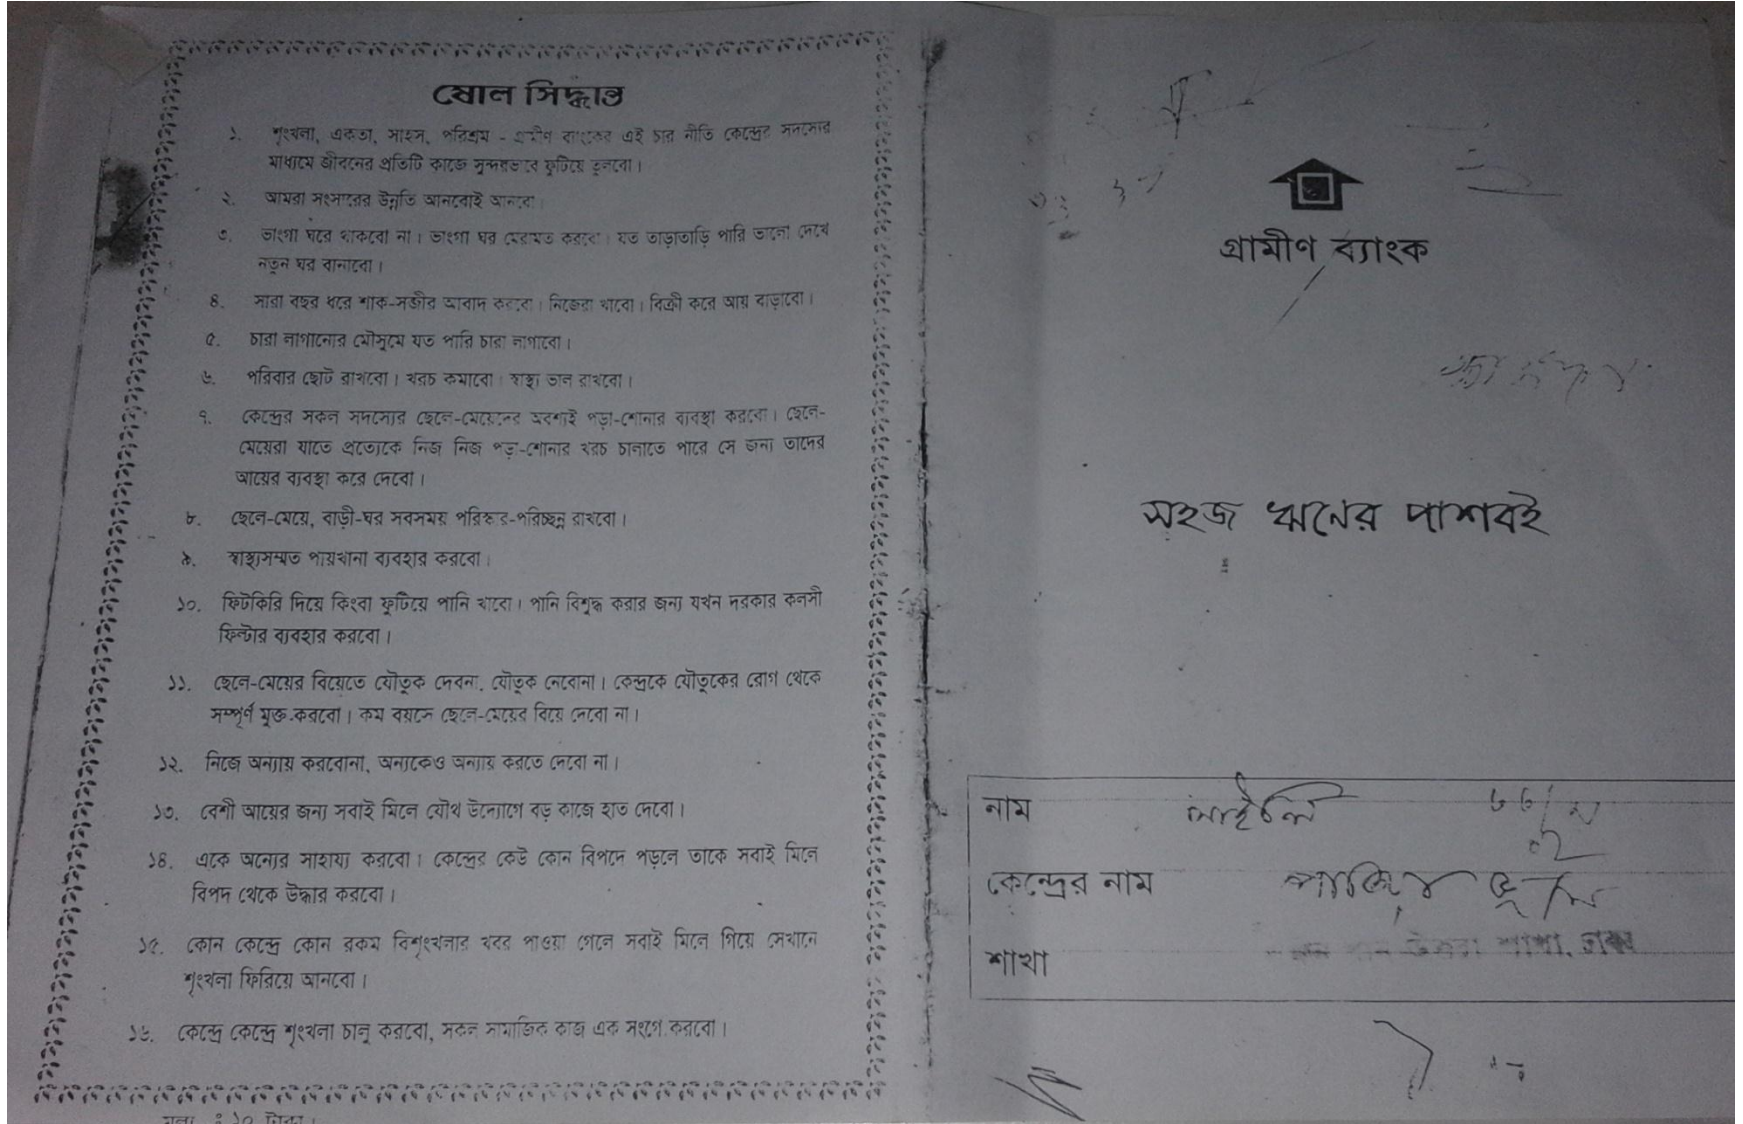 ষোল সিদ্ধান্ত
১. শৃংখলা, একতা, সাহস, পরিশ্রম - গ্রামীণ ব্যাংকের এই চার নীতি কেন্দ্রের সদস্যের
মাধ্যমে জীবনের প্রতিটি কাজে সুন্দরভাবে ফুটিয়ে তুলবো।
২. আমরা সংসারের উন্নতি আনবোই আনবো।
৩. ভাংগা ঘরে থাকবো না। ভাংগা ঘর মেরামত করবো। যত তাড়াতাড়ি পারি ভালো দেখে
নতুন ঘর বানাবো।
৪. সারা বছর ধরে শাক-সজীর আবাদ করবো। নিজেরা খাবো। বিক্রী করে আয় বাড়াবো।
৫. চারা লাগানোর মৌসুমে যত পারি চারা লাগাবো।
৬. পরিবার ছোট রাখবো। খরচ কমাবো। স্বাস্থ্য ভাল রাখবো।
৭. কেন্দ্রের সকল সদস্যের ছেলে-মেয়েদের অবশ্যই পড়া-শোনার ব্যবস্থা করবো। ছেলে-
মেয়েরা যাতে প্রত্যেকে নিজ নিজ পড়া-শোনার খরচ চালাতে পারে সে জন্য তাদের
আয়ের ব্যবস্থা করে দেবো।
৮. ছেলে-মেয়ে, বাড়ী-ঘর সবসময় পরিস্কার-পরিচ্ছন্ন রাখবো।
৯. স্বাস্থ্যসম্মত পায়খানা ব্যবহার করবো।
১০. ফিটকিরি দিয়ে কিংবা ফুটিয়ে পানি খাবো। পানি বিশুদ্ধ করার জন্য যখন দরকার কলসী
ফিল্টার ব্যবহার করবো।
১১. ছেলে-মেয়ের বিয়েতে যৌতুক দেবনা, যৌতুক নেবোনা। কেন্দ্রকে যৌতুকের রোগ থেকে
সম্পূর্ণ মুক্ত করবো। কম বয়সে ছেলে-মেয়ের বিয়ে দেবো না।
১২. নিজে অন্যায় করবোনা, অন্যকেও অন্যায় করতে দেবো না।
১৩. বেশী আয়ের জন্য সবাই মিলে যৌথ উদ্যোগে বড় কাজে হাত দেবো।
১৪. একে অন্যের সাহায্য করবো। কেন্দ্রের কেউ কোন বিপদে পড়লে তাকে সবাই মিলে
বিপদ থেকে উদ্ধার করবো।
১৫. কোন কেন্দ্রে কোন রকম বিশৃংখলার খবর পাওয়া গেলে সবাই মিলে গিয়ে সেখানে
শৃংখলা ফিরিয়ে আনবো।
১৬. কেন্দ্রে কেন্দ্রে শৃংখলা চালু করবো, সকল সামাজিক কাজ এক সংগে করবো।
গ্রামীণ ব্যাংক
সহজ ঋনের পাশবই
নাম লাইলি
কেন্দ্রের নাম
শাখা উত্তরা শাখা, ঢাকা